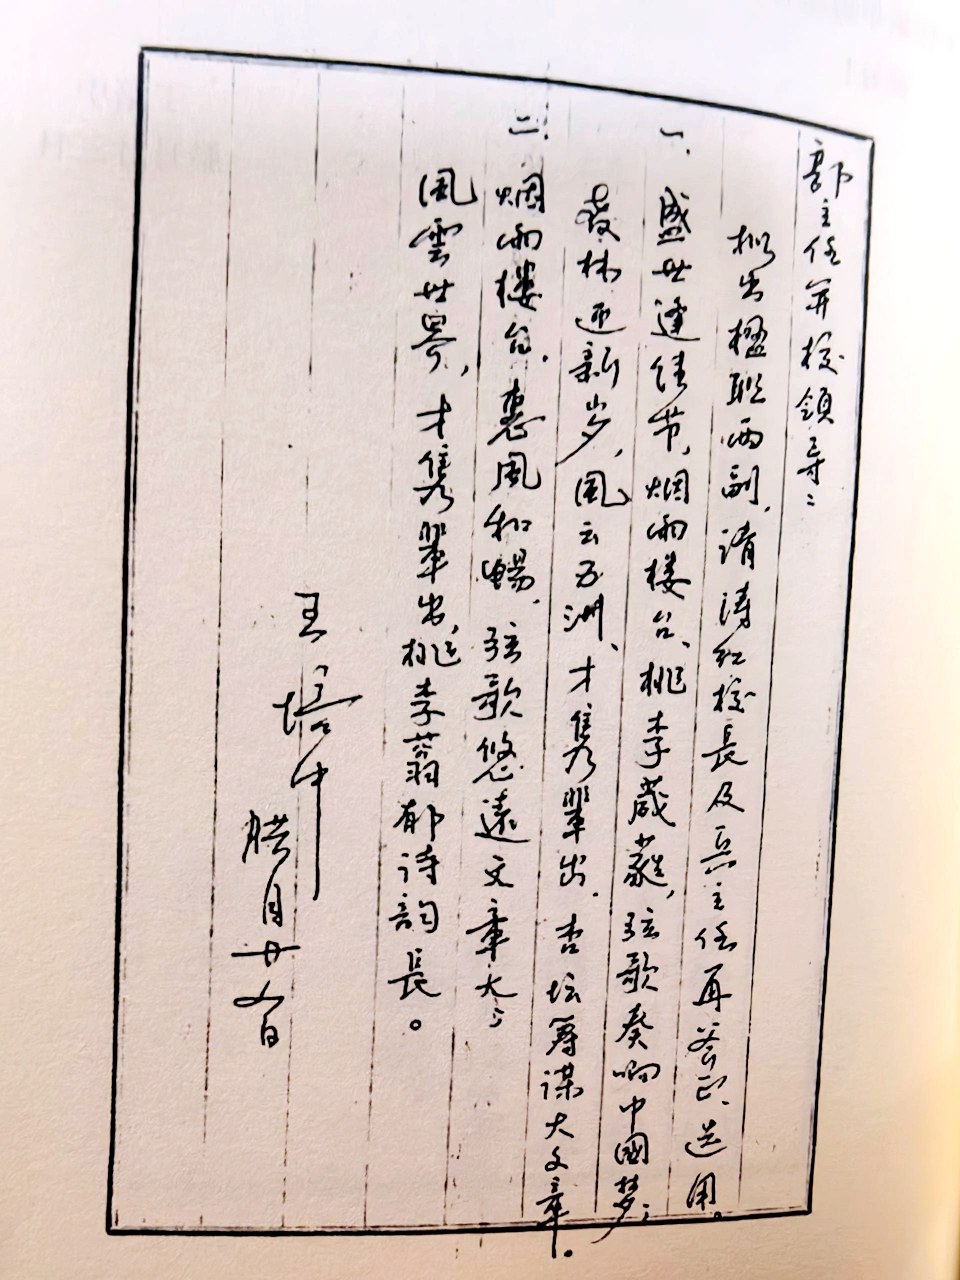 郭主任并校领导：
拟出楹联两副，请涛红校長及兵主任再斧正、选用。
一、盛世逢佳节，烟雨楼台、桃李葳蕤，弦歌奏响中國梦；
 林迎新岁，风云五洲、才隽辈出，杏坛筹谋大文章。
二、烟雨楼台，惠风和畅，弦歌悠遠文章大；
风雲世界，才隽辈出，桃李蓊郁诗韵長。
王培中
腊月廿 日